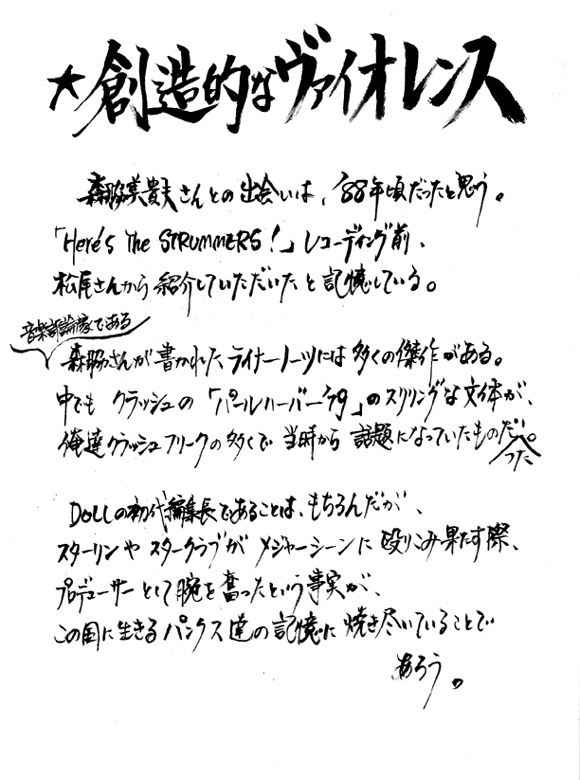 ★創造的なヴァイオレンス
森脇美貴夫さんとの出会いは、'88年頃だったと思う。
「Here's The STRUMMERS!」レコーディング前、
松尾さんから紹介していただいたと記憶している。
音楽評論家である
森脇さんが書かれたライナーノーツには多くの傑作がある。
中でもクラッシュの「パールハーバー'79」のスリリングな文体が、
俺達クラッシュフリークの多くで当時から話題になっていたものだ。
った
DOLLの初代編集長であることは、もちろんだが、
スターリンやスタークラブがメジャーシーンに殴りこみ果たす際、
プロデューサーとして腕を奮ったという事実が、
この国に生きるパンクス達の記憶に焼き尽いていることで
あろう。